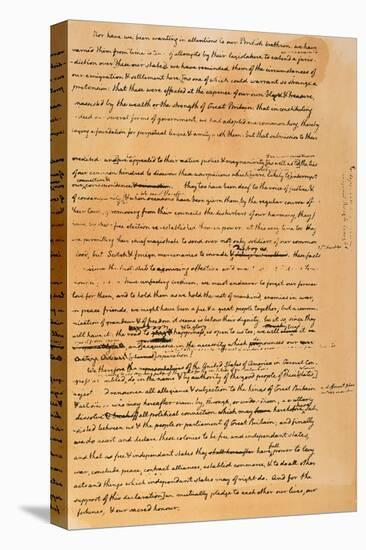 Nor have we been wanting in attentions to our British brethren. we have
warned them from time to time of attempts by their legislature to extend a juris-
diction over these our states. we have reminded them of the circumstances of
our emigration & settlement here, no one of which could warrant so strange a
pretension: that these were effected at the expence of our own blood & treasure,
unassisted by the wealth or the strength of Great Britain: that in constituting
indeed our several forms of government, we had adopted one common king, thereby
laying a foundation for perpetual league & amity with them: but that submission to their
credited: and we appealed to their native justice & magnanimity as well as to the ties
of our common kindred to disavow these usurpations which were likely to interrupt
connection &
our correspondence they too have been deaf to the voice of justice &
of consanguinity, & when occasions have been given them by the regular course of
their laws, of removing from their councils the disturbers of our harmony, they
have by their free election re-established them in power. at this very time too they
are permitting their chief magistrate to send over not only soldiers of our common
blood, but Scotch & foreign mercenaries to invade & destroy us these facts
have given the last stab to agonizing affection and
these unfeeling brethren. we must endeavor to forget our former
love for them, and to hold them as we hold the rest of mankind, enemies in war,
in peace friends. we might have been a free & great people together; but a commu-
nication of grandeur & of freedom it seems is below their dignity. be it so, since they
will have it: the road to happiness & to glory is open to us too; we will
acquiesce in the necessity which denounces our
eternal separation!
We therefore the representatives of the United States of America in General Con-
gress assembled, do in the name & by authority of the good people of these states
reject & renounce all allegiance & subjection to the kings of Great Britain
& all others who may hereafter claim by, through, or under them; we utterly
dissolve all political connection which may have
sisted between us & the people or parliament of Great Britain; and finally
we do assert and declare these colonies to be free and independant states,
and that as free & independant states they have full power to levy
war, conclude peace, contract alliances, establish commerce, & to do all other
acts and things which independant states may of right do. And for the
support of this declaration we mutually pledge to each other our lives, our
fortunes, & our sacred honour.